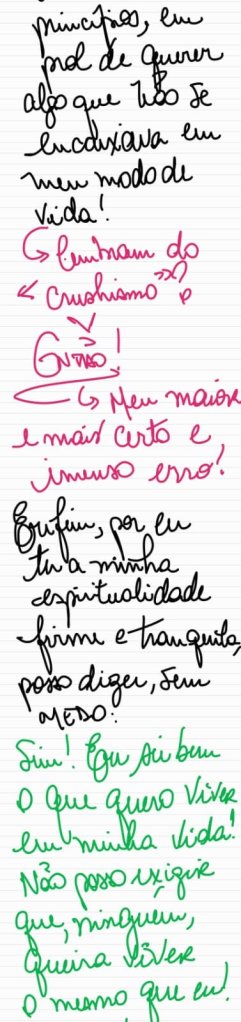 princípios, em
prol de querer
algo que não se
encaixava em
meu modo de
vida!
Lembram do
"crushismo"?
ENTÃO!
Meu maior
e mais certo e
imenso erro!
Enfim, por eu
ter a minha
espiritualidade
firme e tranquila,
posso dizer, sem
MEDO:
Sim! Eu sei bem
o que quero viver
em minha vida!
Não posso exigir
que, ninguém,
queira viver
o mesmo que eu!